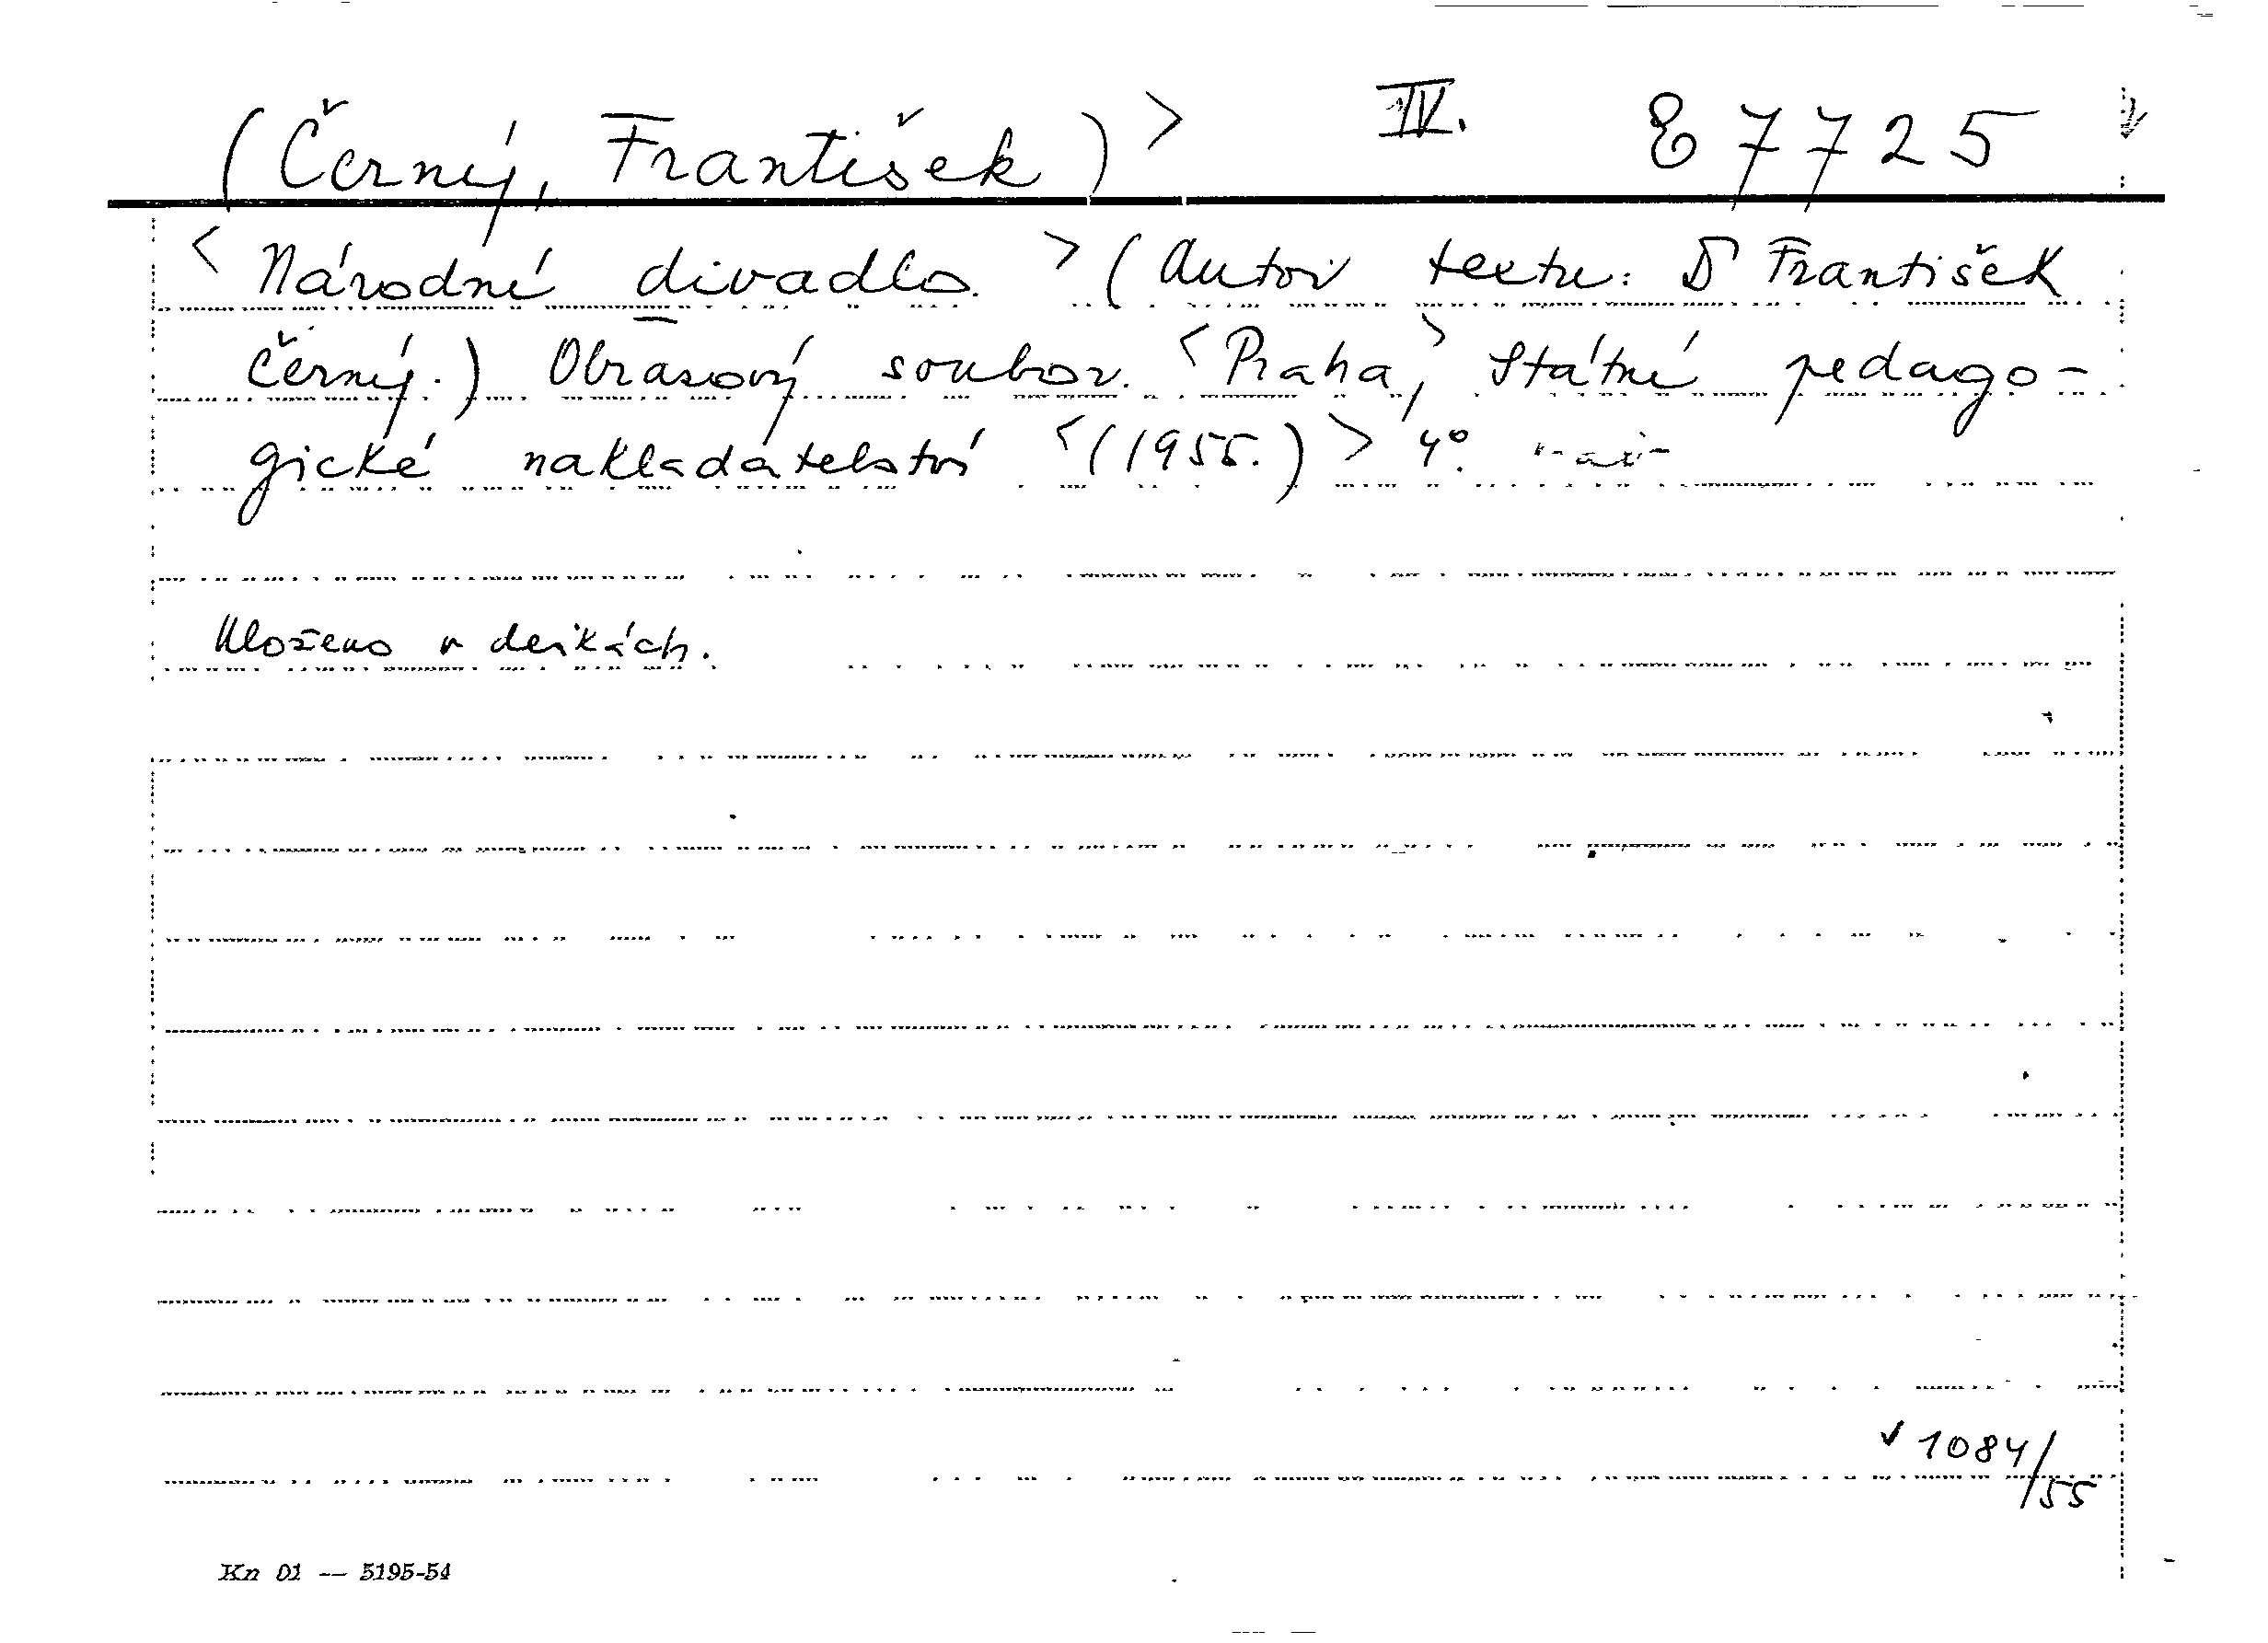 (Černý, František) > IV. E 7725
< Národní divadlo. > (Autor textu: Dr František
Černý.) Obrazový soubor. < Praha, > Státní pedago-
gické nakladatelství < (1955.) > 4°.
Uloženo v deskách.
✓ 1084/55
Kn 01 — 5195-54